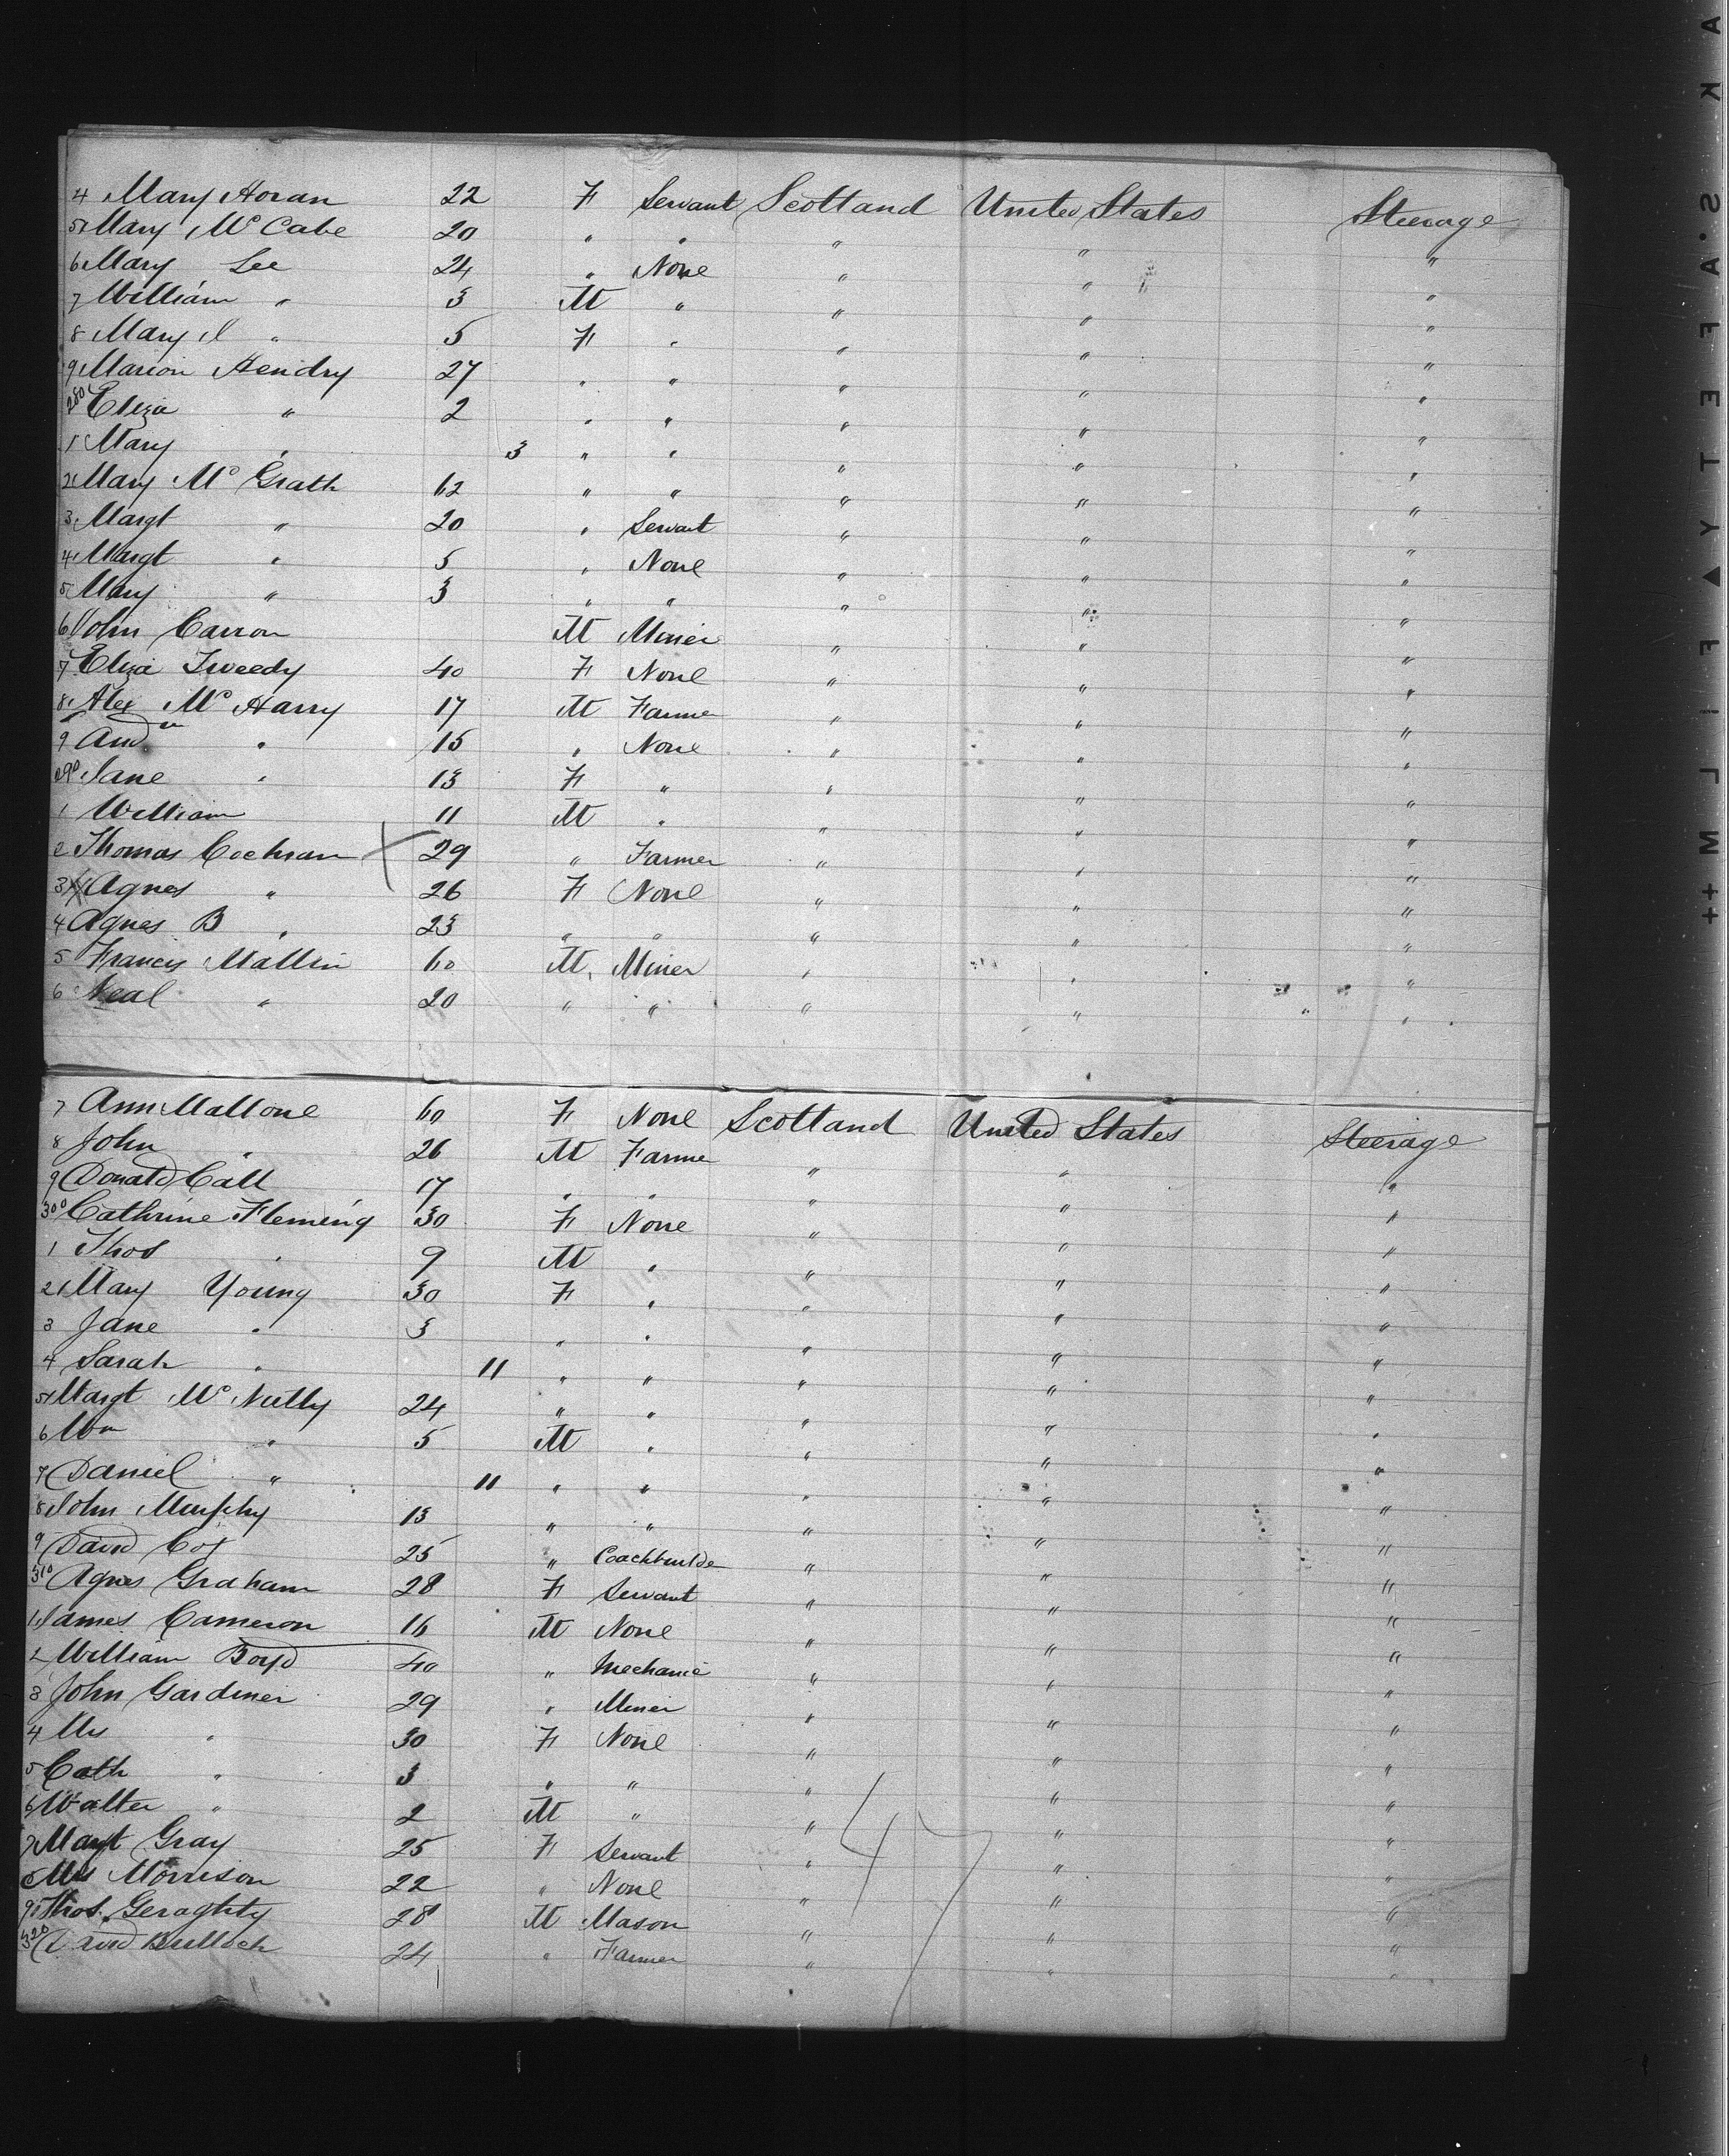 4 Mary Horan 22 F Servant Scotland United States Steerage
5 Mary Mc Cabe 20 " " " " "
6 Mary Lee 24 " None " " "
7 William " 3 M " " " "
8 Mary J " 5 F " " " "
9 Marion Hendry 27 " " " " "
280 Eliza " 2 " " " " "
1 Mary " 3 " " " " "
2 Mary Mc Grath 62 " " " " "
3 Margt " 20 " Servant " " "
4 Margt " 5 " None " " "
5 Mary " 3 " " " " "
6 John Carron M Miner " " "
7 Eliza Tweedy 40 F None " " "
8 Alex Mc Harry 17 M Farme " " "
9 Andw " 15 " None " " "
290 Jane " 13 F " " " "
1 William 11 M " " " "
2 Thomas Cochran X 29 " Farmer " " "
3 Agnes " 26 F None " " "
4 Agnes B " 23 " " " " "
5 Francis Mallin 60 M Miner " " "
6 Neal " 20 " " " " "
7 Ann Mallone 60 F None Scotland United States Steerage
8 John " 26 M Farme " " "
9 Donald Call 17 " " " " "
300 Cathrine Fleming 30 F None " " "
1 Thos " 9 M " " " "
2 Mary Young 30 F " " " "
3 Jane " 3 " " " " "
4 Sarah " 11 " " " " "
5 Margt Mc Nutty 24 " " " " "
6 Wm " 5 M " " " "
7 Daniel " 11 " " " " "
8 John Murphy 13 " " " " "
9 David Cox 25 " Coachbuilde " " "
310 Agnes Graham 28 F Servant " " "
1 James Cameron 16 M None " " "
2 William Boyd 40 " Mechanic " " "
3 John Gardiner 29 " Miner " " "
4 Mrs " 30 F None " " "
5 Cath " 3 " " " " "
6 Walter " 2 M " " " "
7 Margt Gray 25 F Servant " " "
8 Mrs Morrison 22 " None " " "
9 Thos. Geraghty 28 M Mason " " "
320 David Bulloch 24 " Farmer " " "
47